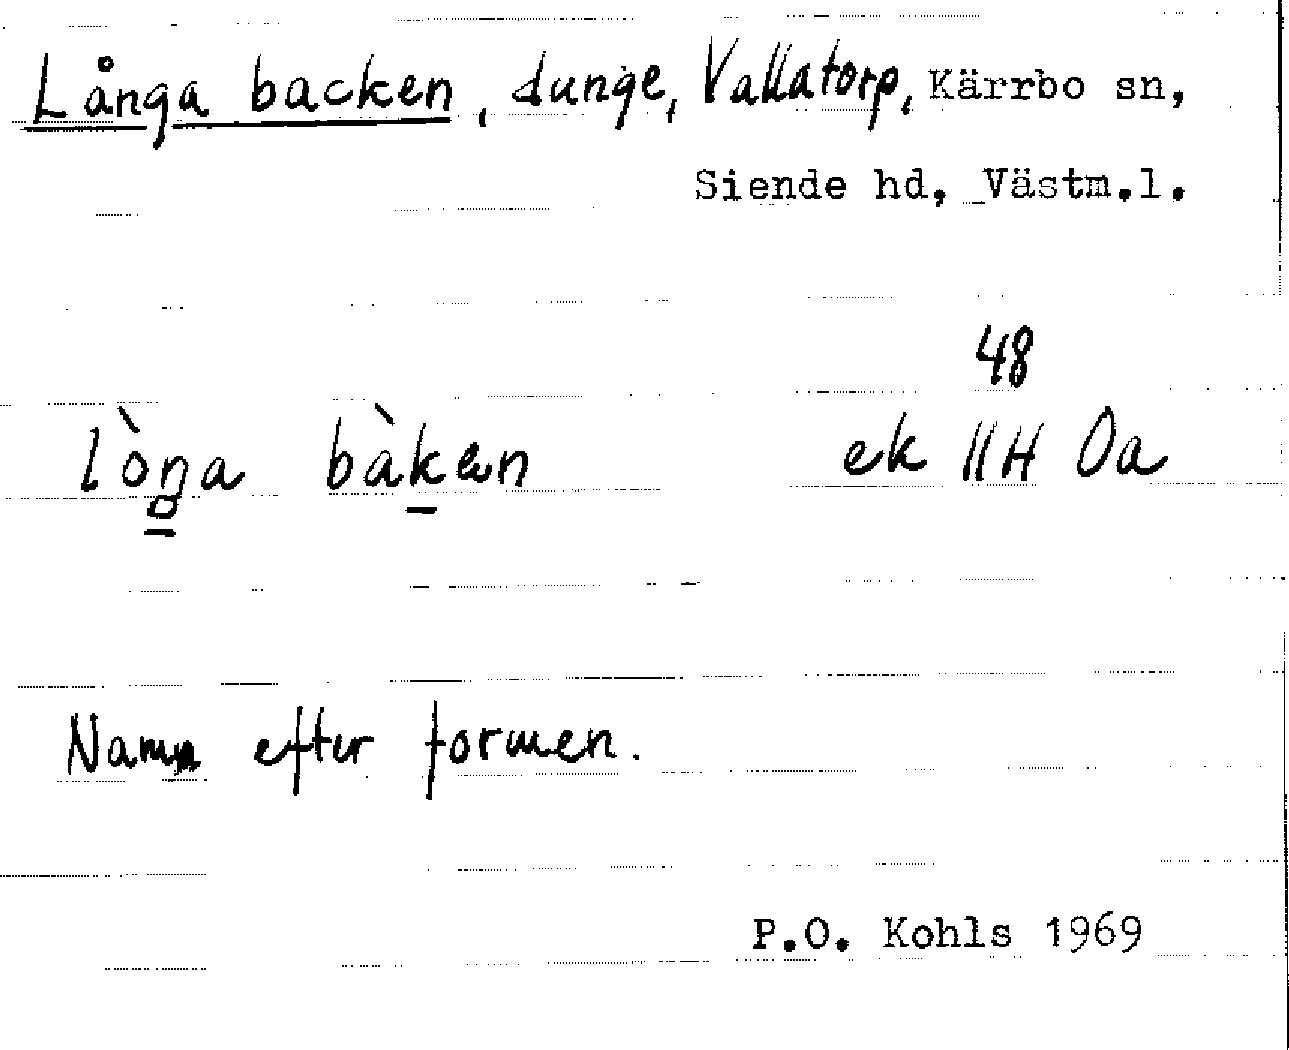 Långa backen, dunge, Vallatorp, Kärrbo sn,
Siende hd, Västm.l.
48
lòŋa bàkæn ek 11H 0a
Namn efter formen.
P.O. Kohls 1969